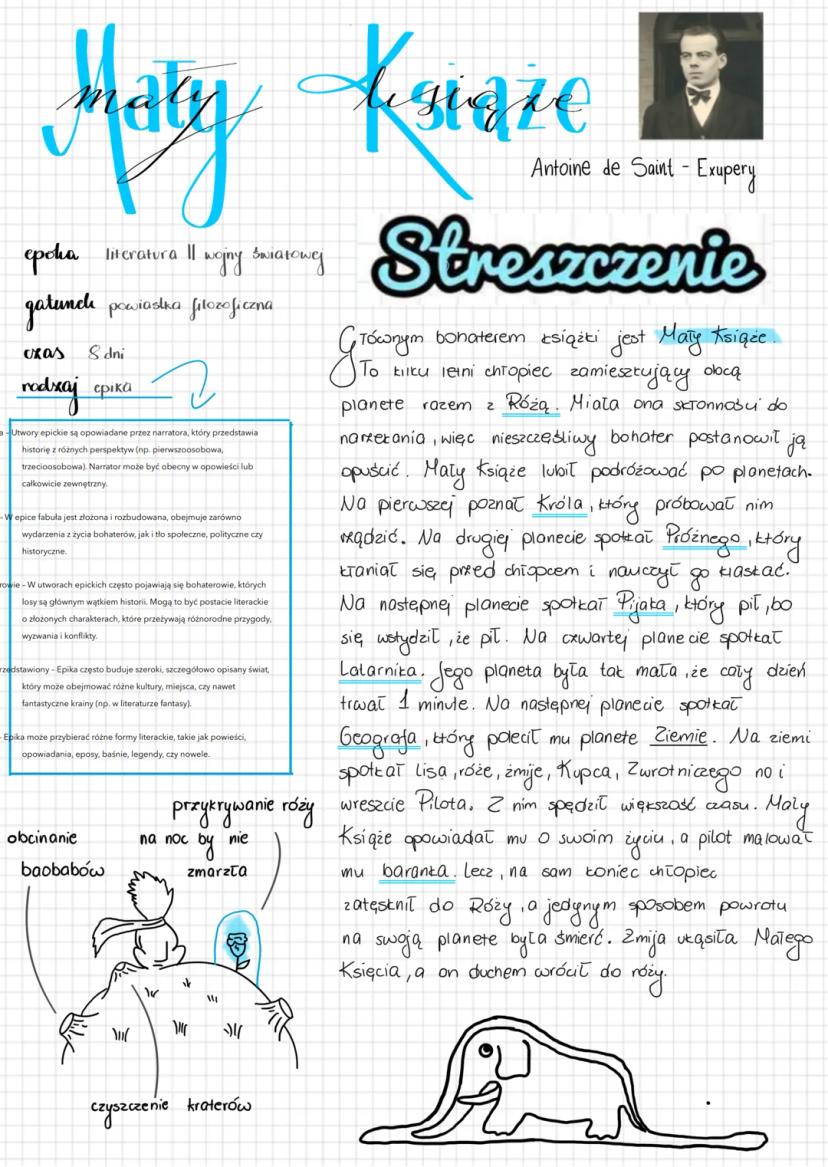 Mały Książe
mały książe
Antoine de Saint - Exupery
epoka literatura II wojny światowej
gatunek powiastka filozoficzna
czas 8 dni
rodzaj epika
a – Utwory epickie są opowiadane przez narratora, który przedstawia
historię z różnych perspektyw (np. pierwszoosobowa,
trzecioosobowa). Narrator może być obecny w opowieści lub
całkowicie zewnętrzny.
– W epice fabuła jest złożona i rozbudowana, obejmuje zarówno
wydarzenia z życia bohaterów, jak i tło społeczne, polityczne czy
historyczne.
owie – W utworach epickich często pojawiają się bohaterowie, których
losy są głównym wątkiem historii. Mogą to być postacie literackie
o złożonych charakterach, które przeżywają różnorodne przygody,
wyzwania i konflikty.
rzedstawiony – Epika często buduje szeroki, szczegółowo opisany świat,
który może obejmować różne kultury, miejsca, czy nawet
fantastyczne krainy (np. w literaturze fantasy).
– Epika może przybierać różne formy literackie, takie jak powieści,
opowiadania, eposy, baśnie, legendy, czy nowele.
przykrywanie róży
na noc by nie
zmarzła
obcinanie
baobabów
czyszczenie kraterów
Streszczenie
Głównym bohaterem książki jest Mały Książe.
To kilku letni chłopiec zamieszkujący obcą
planete razem z Różą. Miała ona skłonności do
narzekania, więc nieszczęśliwy bohater postanowił ją
opuścić. Mały Książe lubił podróżować po planetach.
Na pierwszej poznał Króla, który próbował nim
rządzić. Na drugiej planecie spotkał Próżnego, który
kłaniał się przed chłopcem i nauczył go klaskać.
Na następnej planecie spotkał Pijaka, który pił, bo
się wstydził, że pił. Na czwartej planecie spotkał
Latarnika. Jego planeta była tak mała, że cały dzień
trwał 1 minute. Na następnej planecie spotkał
Geografa, który polecił mu planete Ziemie. Na ziemi
spotkał lisa, róże, żmije, Kupca, Zwrotniczego no i
wreszcie Pilota. Z nim spędził większość czasu. Mały
Książe opowiadał mu o swoim życiu, a pilot malował
mu baranka. Lecz, na sam koniec chłopiec
zatęsknił do Róży, a jedynym sposobem powrotu
na swoją planete była śmierć. Żmija ukąsiła Małego
Księcia, a on duchem wrócił do róży.